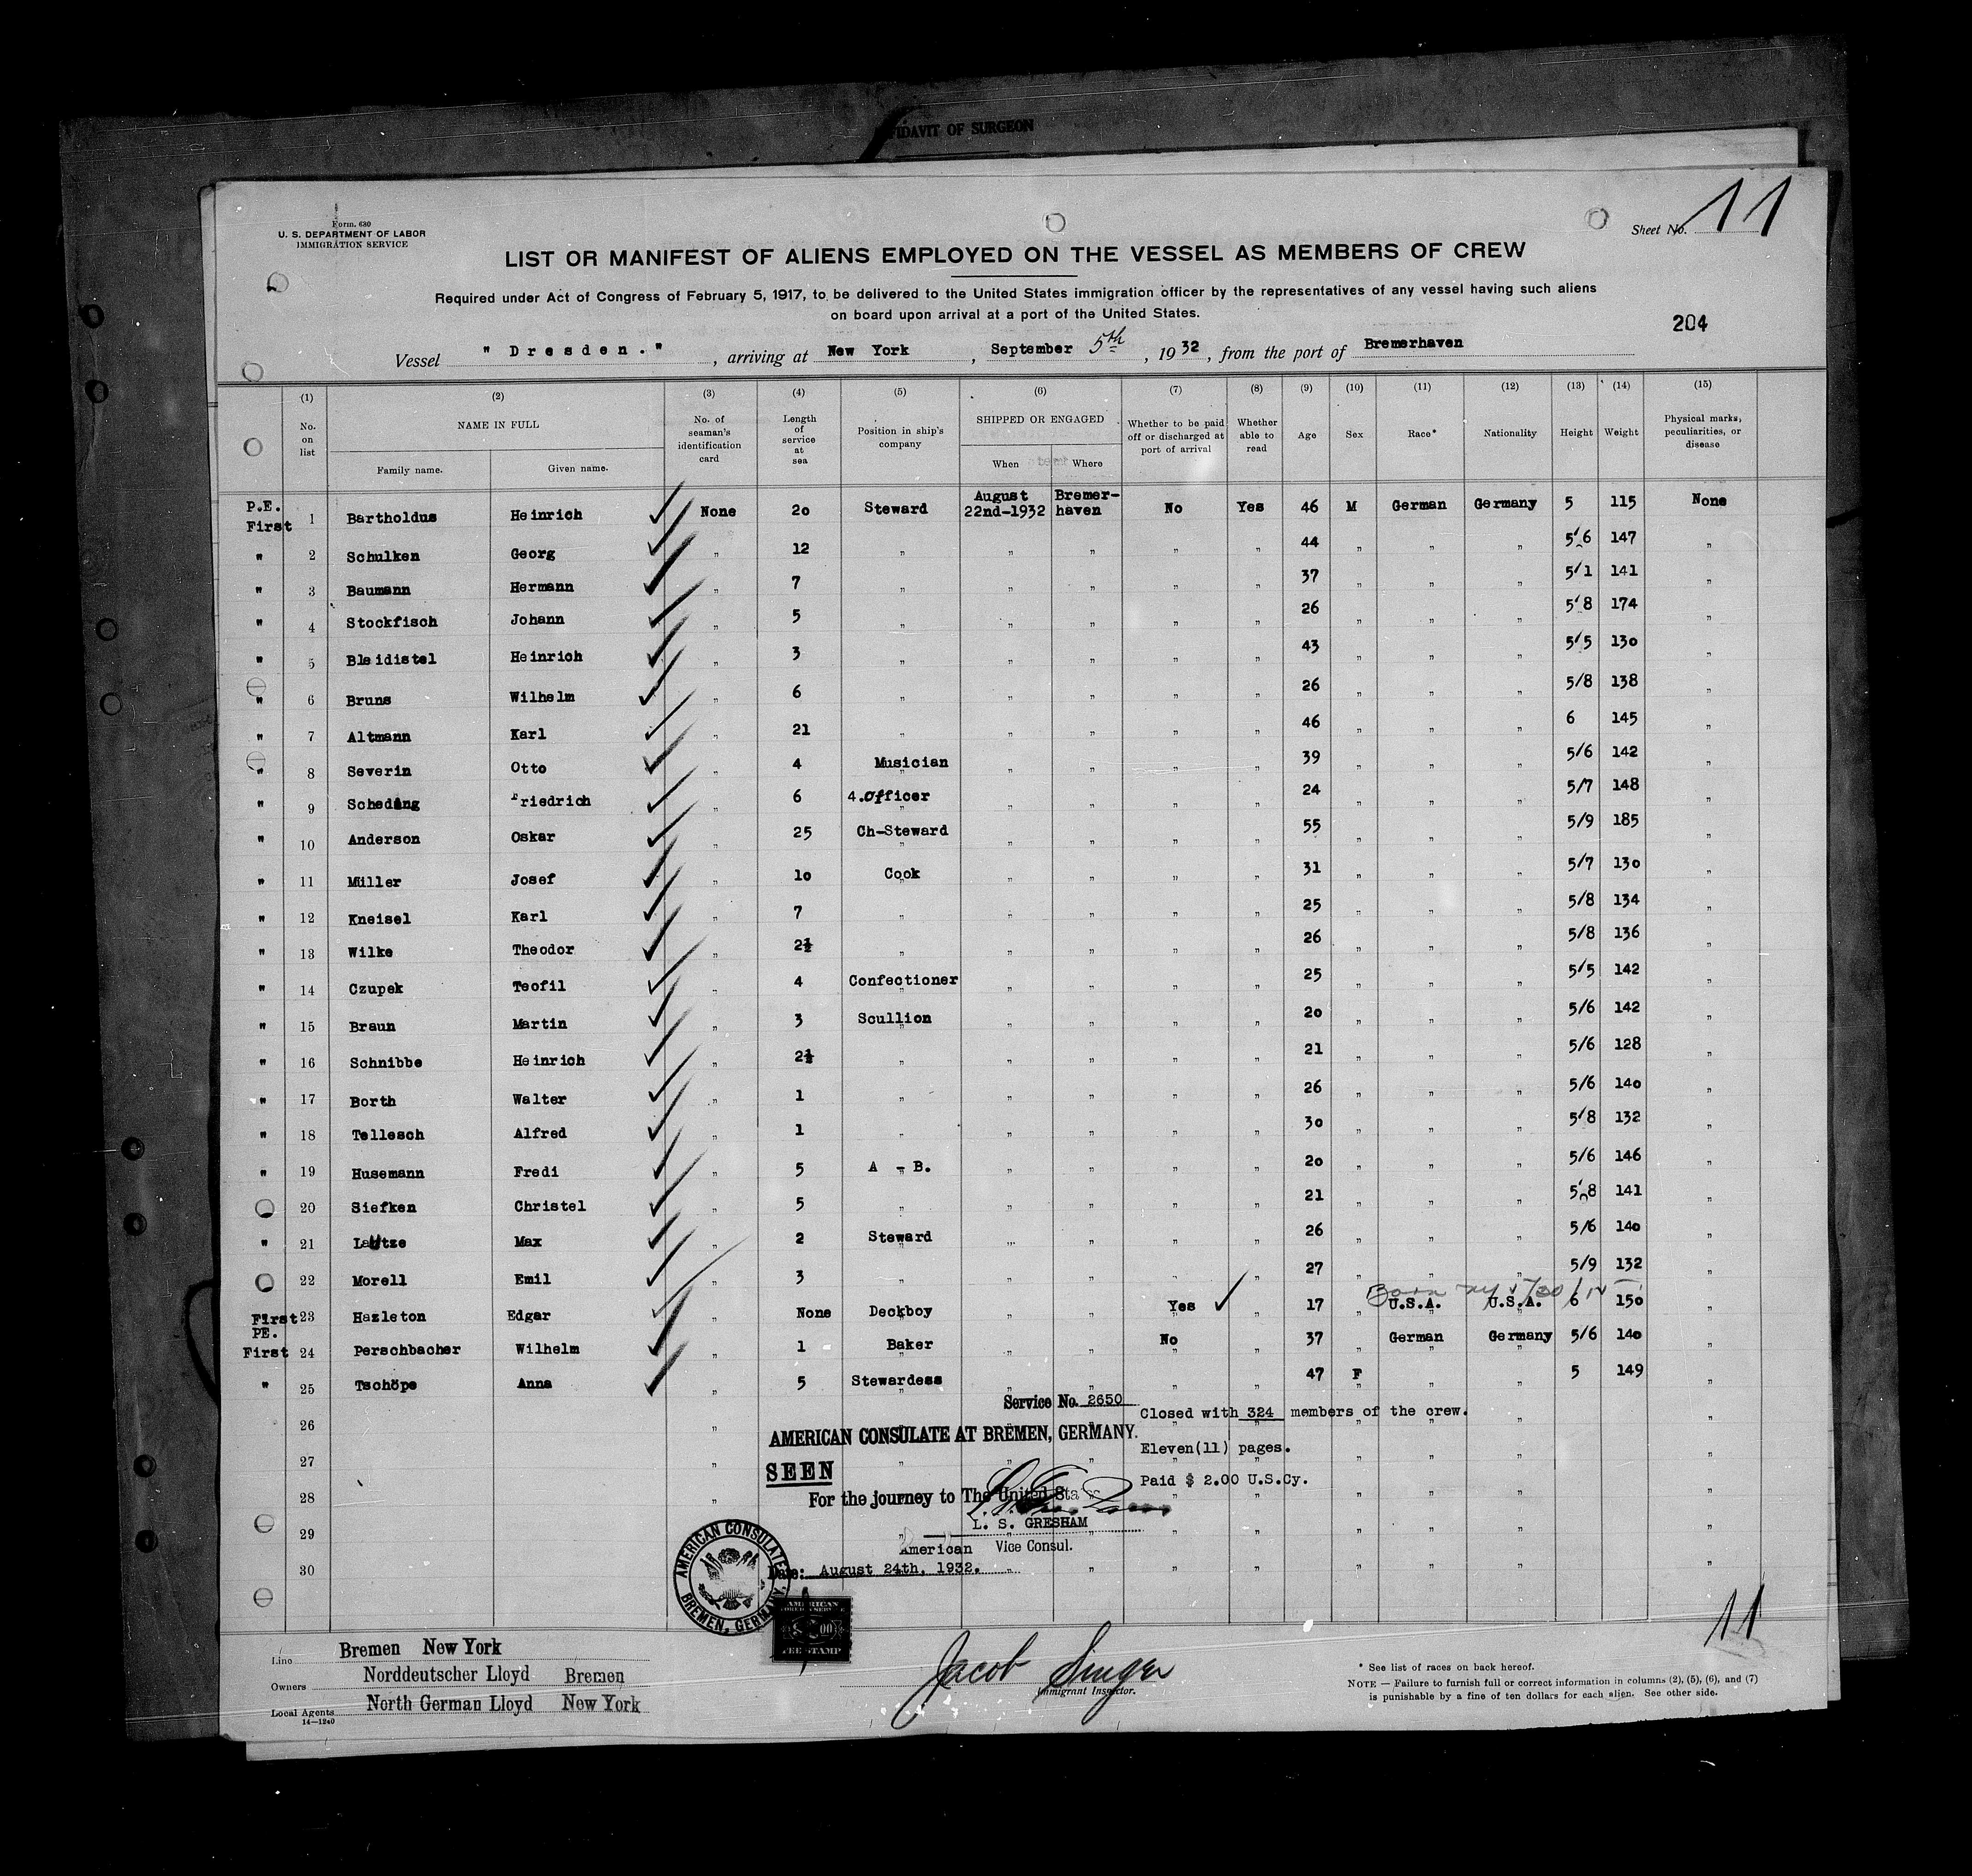 IDAVIT OF SURGEON
Form. 630
U. S. DEPARTMENT OF LABOR
IMMIGRATION SERVICE
Sheet No. 11
LIST OR MANIFEST OF ALIENS EMPLOYED ON THE VESSEL AS MEMBERS OF CREW
Required under Act of Congress of February 5, 1917, to be delivered to the United States immigration officer by the representatives of any vessel having such aliens
on board upon arrival at a port of the United States.
204
Vessel "Dresden.", arriving at New York, September 5th, 1932, from the port of Bremerhaven
(1) (2) (3) (4) (5) (6) (7) (8) (9) (10) (11) (12) (13) (14) (15)
No. on list NAME IN FULL Family name. Given name. No. of seaman's identification card Length of service at sea Position in ship's company SHIPPED OR ENGAGED When Where Whether to be paid off or discharged at port of arrival Whether able to read Age Sex Race* Nationality Height Weight Physical marks, peculiarities, or disease
P.E. First 1 Bartholdus Heinrich None 20 Steward August 22nd-1932 Bremer-haven No Yes 46 M German Germany 5 115 None
" 2 Schulken Georg " 12 " " " " " 44 " " " 5/6 147 "
" 3 Baumann Hermann " 7 " " " " " 37 " " " 5/1 141 "
" 4 Stockfisch Johann " 5 " " " " " 26 " " " 5/8 174 "
" 5 Bleidistel Heinrich " 3 " " " " " 43 " " " 5/5 130 "
" 6 Bruns Wilhelm " 6 " " " " " 26 " " " 5/8 138 "
" 7 Altmann Karl " 21 " " " " " 46 " " " 6 145 "
" 8 Severin Otto " 4 Musician " " " " 39 " " " 5/6 142 "
" 9 Scheding Friedrich " 6 4.Officer " " " " 24 " " " 5/7 148 "
" 10 Anderson Oskar " 25 Ch-Steward " " " " 55 " " " 5/9 185 "
" 11 Müller Josef " 10 Cook " " " " 31 " " " 5/7 130 "
" 12 Kneisel Karl " 7 " " " " " 25 " " " 5/8 134 "
" 13 Wilke Theodor " 2½ " " " " " 26 " " " 5/8 136 "
" 14 Czupek Teofil " 4 Confectioner " " " " 25 " " " 5/5 142 "
" 15 Braun Martin " 3 Scullion " " " " 20 " " " 5/6 142 "
" 16 Schnibbe Heinrich " 2½ " " " " " 21 " " " 5/6 128 "
" 17 Borth Walter " 1 " " " " " 26 " " " 5/6 140 "
" 18 Tellesch Alfred " 1 " " " " " 30 " " " 5/8 132 "
" 19 Husemann Fredi " 5 A - B. " " " " 20 " " " 5/6 146 "
20 Siefken Christel " 5 " " " " " 21 " " " 5/8 141 "
" 21 Lautze Max " 2 Steward " " " " 26 " " " 5/6 140 "
22 Morell Emil " 3 " " " " " 27 " " " 5/9 132 "
Born NY
First 23 Hazleton Edgar " None Deckboy " " Yes " 17 " U.S.A. U.S.A. 6 150 "
PE. First 24 Perschbacher Wilhelm " 1 Baker " " No " 37 " German Germany 5/6 140 "
" 25 Tschöpe Anna " 5 Stewardess " " " " 47 F " " 5 149 "
26
27
28
29
30
Service No. 2650
AMERICAN CONSULATE AT BREMEN, GERMANY.
SEEN
For the journey to The United States
L. S. GRESHAM
American Vice Consul.
Date: August 24th. 1932.
Closed with 324 members of the crew.
Eleven(11) pages.
Paid $ 2.00 U.S.Cy.
AMERICAN CONSULATE BREMEN, GERMANY.
AMERICAN FOREIGN SERVICE FEE STAMP
11
Line Bremen New York
Owners Norddeutscher Lloyd Bremen
Local Agents North German Lloyd New York
14—1240
Jacob Singer
Immigrant Inspector.
* See list of races on back hereof.
NOTE — Failure to furnish full or correct information in columns (2), (5), (6), and (7)
is punishable by a fine of ten dollars for each alien. See other side.